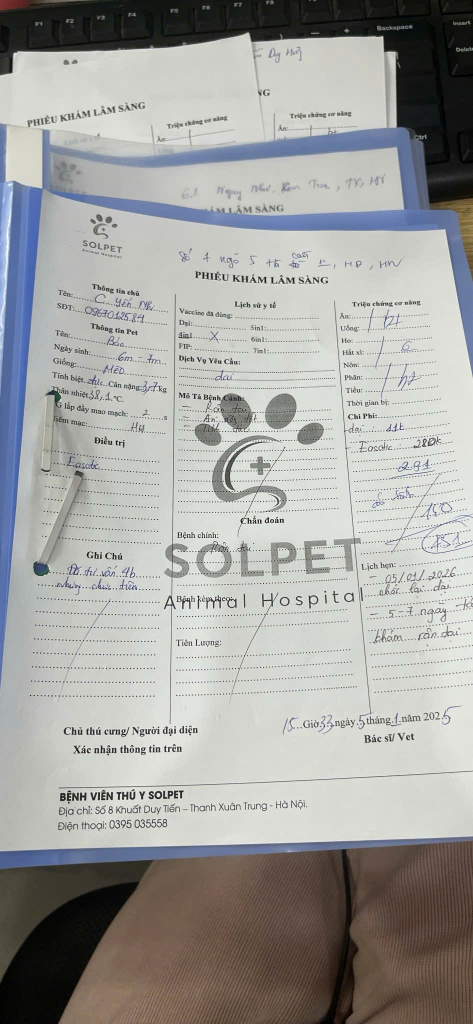 F1
F2
F3
F4
F5
F6
F7
F8
Backspace
Insert
Delete
Ctrl
Duy
PHIẾU KHÁM LÂM SÀNG
Triệu chứng cơ năng
Ăn:
Triệu chứng cơ năng
Ăn:
KHÁM LÂM SÀNG
SOLPET
Animal Hospital
Số 7 ngõ 5 HĐ, HN
PHIẾU KHÁM LÂM SÀNG
Thông tin chủ
Tên: C. Yến Nhi
SĐT: 0967012584
Thông tin Pet
Tên: Báo
Ngày sinh: 6m - 7m
Giống: MEO
Tính biệt: đực Cân nặng: 3,7 kg
Thân nhiệt: 38,1 °C
TG lấp đầy mao mạch: 2 s
Niêm mạc: H
Điều trị
Easotic
Ghi Chú
Đã tư vấn 4b
nhưng chưa tiêm
Lịch sử y tế
Vaccine đã dùng:
Dại:
5in1:
4in1: X
6in1:
FIP:
7in1:
Dịch Vụ Yêu Cầu:
dại
Mô Tả Bệnh Cảnh:
- Rận tai
- Ăn uống bt
SOLPET
Animal Hospital
Chẩn đoán
Bệnh chính: Rận tai
Bệnh kèm theo:
Tiên Lượng:
Triệu chứng cơ năng
Ăn:
Uống: bt
Ho:
Hắt xì:
Nôn:
Phân:
Tiểu: bt
Thời gian bị:
Chi Phí:
- dại 11k
- Easotic: 280k
291
Lịch hẹn:
- 05/01/2026
nhắc lại dại
- 5-7 ngày tái
khám rận tai
15 Giờ 33 ngày 5 tháng 1 năm 2025
Chủ thú cưng/ Người đại diện
Xác nhận thông tin trên
Bác sĩ/ Vet
BỆNH VIÊN THÚ Y SOLPET
Địa chỉ: Số 8 Khuất Duy Tiến – Thanh Xuân Trung - Hà Nội.
Điện thoại: 0395 035558